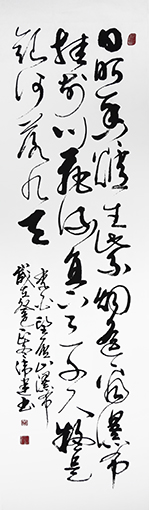 日照香爐生紫烟遥看瀑布
挂前川飛流直下三千尺疑是
銀河落九天
李白望廬山瀑布
書